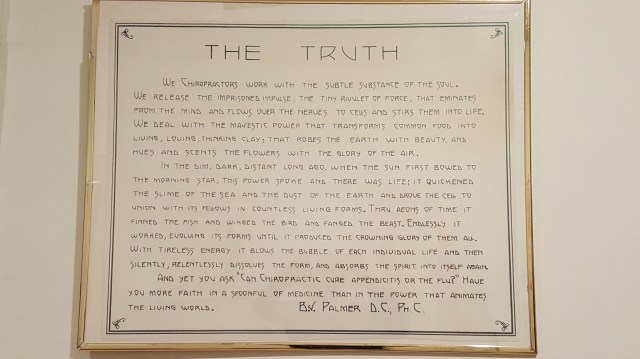 THE TRUTH
WE CHIROPRACTORS WORK WITH THE SUBTLE SUBSTANCE OF THE SOUL.
WE RELEASE THE IMPRISONED IMPULSE, THE TINY RIVULET OF FORCE, THAT EMINATES
FROM THE MIND AND FLOWS OVER THE NERVES TO CELLS AND STIRS THEM INTO LIFE.
WE DEAL WITH THE MAJESTIC POWER THAT TRANSFORMS COMMON FOOD INTO
LIVING, LOVING, THINKING CLAY; THAT ROBES THE EARTH WITH BEAUTY, AND
HUES AND SCENTS THE FLOWERS WITH THE GLORY OF THE AIR.
IN THE DIM, DARK, DISTANT LONG AGO, WHEN THE SUN FIRST BOWED TO
THE MORNING STAR, THIS POWER SPOKE AND THERE WAS LIFE; IT QUICKENED
THE SLIME OF THE SEA AND THE DUST OF THE EARTH AND DROVE THE CELL TO
UNION WITH ITS FELLOWS IN COUNTLESS LIVING FORMS. THRU AEONS OF TIME IT
FINNED THE FISH AND WINGED THE BIRD AND FANGED THE BEAST. ENDLESSLY IT
WORKED, EVOLVING ITS FORMS UNTIL IT PRODUCED THE CROWNING GLORY OF THEM ALL.
WITH TIRELESS ENERGY IT BLOWS THE BUBBLE OF EACH INDIVIDUAL LIFE AND THEN
SILENTLY, RELENTLESSLY DISSOLVES THE FORM, AND ABSORBS THE SPIRIT INTO ITSELF AGAIN.
AND YET YOU ASK "CAN CHIROPRACTIC CURE APPENDICITIS OR THE FLU?" HAVE
YOU MORE FAITH IN A SPOONFUL OF MEDICINE THAN IN THE POWER THAT ANIMATES
THE LIVING WORLD. B.J. PALMER D.C., PH.C.